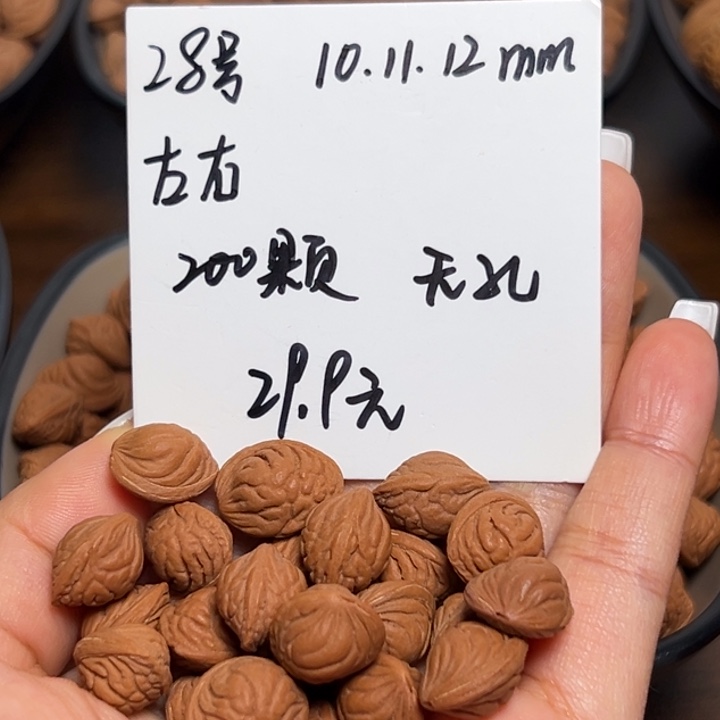 28号 10.11.12mm
左右
200颗 无孔
29.9元